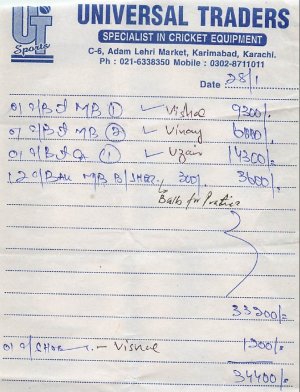 UT
Sports
UNIVERSAL TRADERS
SPECIALIST IN CRICKET EQUIPMENT
C-6, Adam Lehri Market, Karimabad, Karachi.
Ph : 021-6338350 Mobile : 0302-8711011
Date 28/1
01 MB 1 Vishal 9300/.
01 MB 2 Vinay 6000/.
01 1 Uzair 14300/.
12 MB 300/. 3600/.
Balls for Practice
33200/.
01 Vishal 1200/.
34400/.